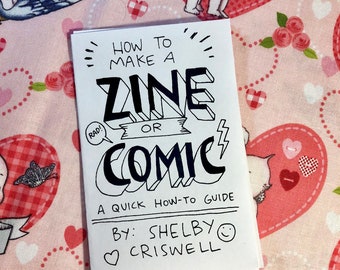 HOW TO
MAKE A
ZINE
RAD!
OR
COMIC
A QUICK HOW-TO GUIDE
BY: SHELBY
CRISWELL